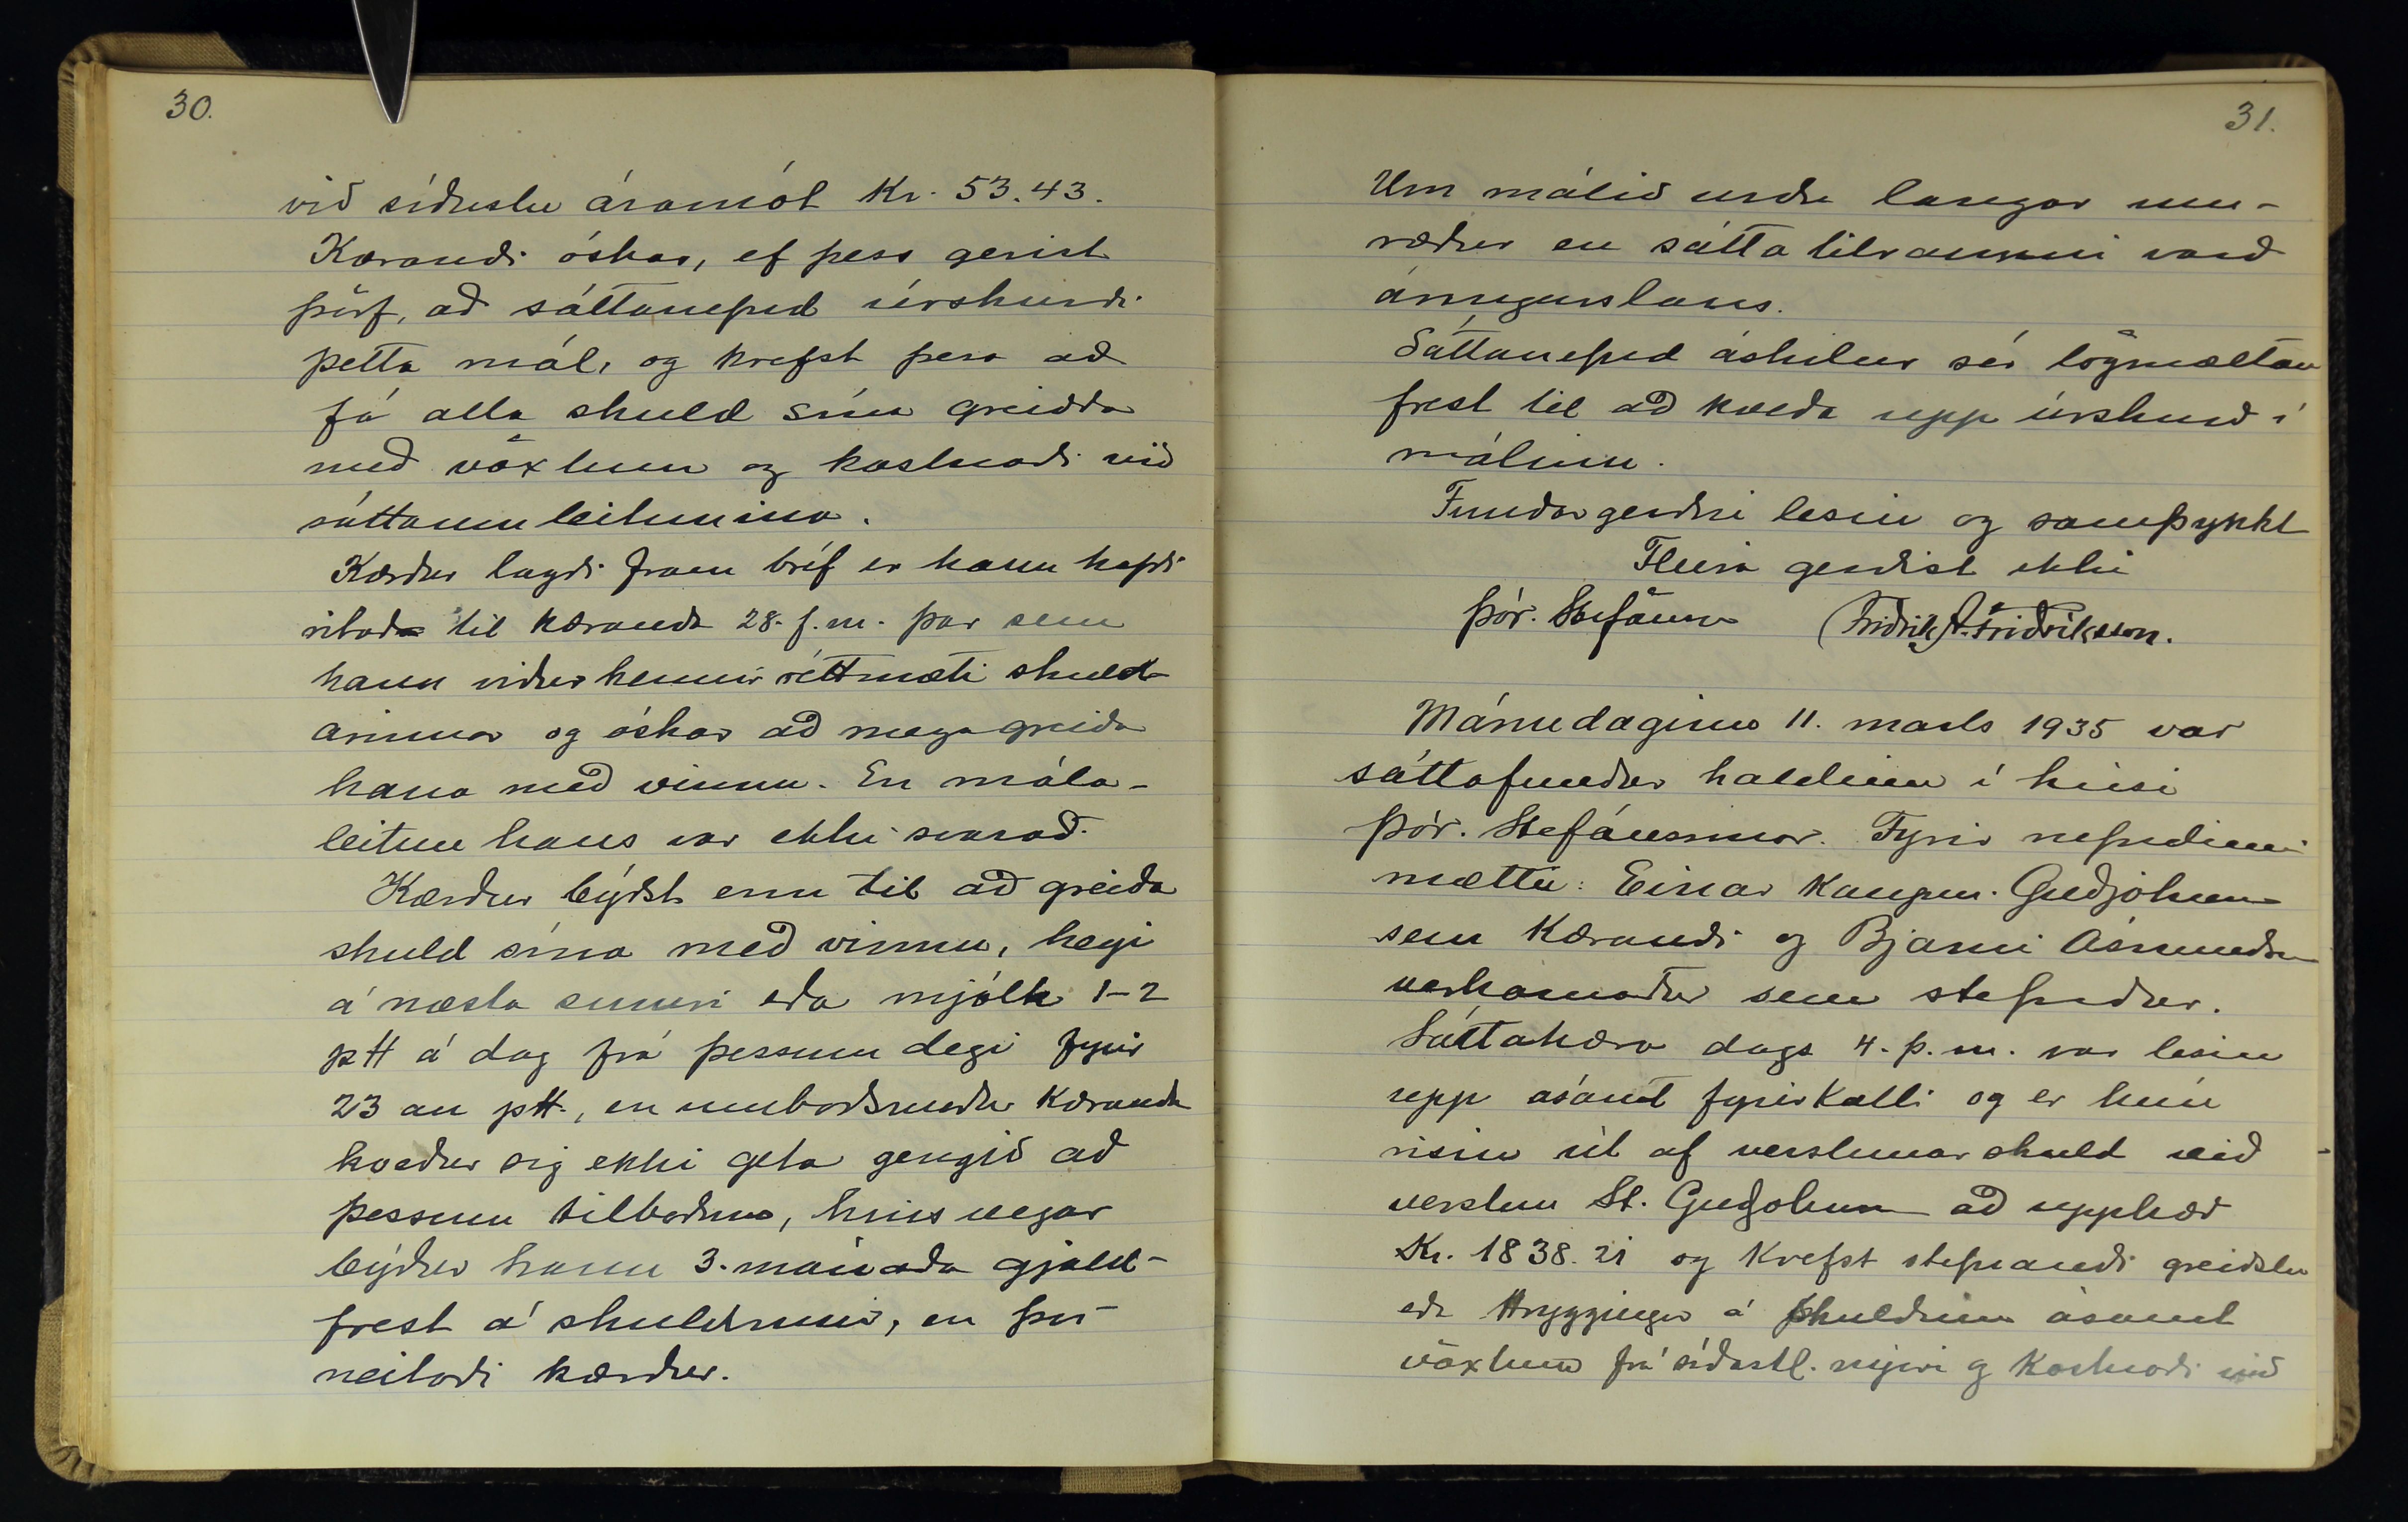 30.
við síðustu áramót Kr. 53.43.
Kærandi óskar, ef þess gerist
þörf, að sáttanefnd úrskurði
þetta mál, og krefst þess að
fá alla skuld sína greidda
með vöxtum og kostnaði við
sáttaumleitunina.
Kærður lagði fram bréf er hann hafði
ritað til kæranda 28. f.m. þar sem
hann viðurkennir réttmæti skuld-
arinnar og óskar að mega greiða
hana með vinnu. En mála-
leitun hans var ekki svarað.
Kærður býðst enn til að greiða
skuld sína með vinnu, heyi
á næsta sumri eða mjólk 1-2
ptt á dag frá þessum degi fyrir
23 au ptt., en umboðsmaður kæranda
kveður sig ekki geta gengið að
þessum tilboðum, hins vegar
býður hann 3. mánaða gjald-
frest á skuldinni, en því
neitaði kærður.
31.
Um málið urðu langar um-
ræður en sáttatilraunin varð
árangurslaus.
Sáttanefnd áskilur sér lögmæltan
frest til að kveða upp úrskurð í
málinu.
Fundargerðin lesin og samþykkt
Fleira gerðist ekki
Þór. Stefánss Friðrik A. Friðriksson.
Mánudaginn 11. marts 1935 var
sáttafundur haldinn í húsi
Þór. Stefánssonar. Fyrir nefndinni
mættu: Einar kaupm. Guðjohnsen
sem kærandi og Bjarni Ásmundss
verkamaður sem stefndur.
Sáttakæra dags 4. þ.m. var lesin
upp ásamt fyrirkalli og er hún
risin út af verslunarskuld við
verslun St. Guðjohnsen að upphæð
Kr. 1838.21 og krefst stefnandi greiðslu
eða tryggingu á skuldinni ásamt
vöxtum frá síðastl. nýári og kostnaði við